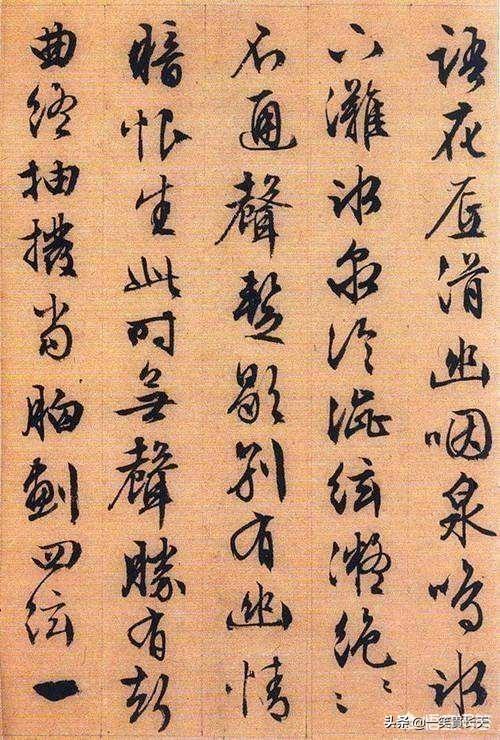 語花底滑幽咽泉鳴冰
下灘冰泉冷澀絃凝絕〻
不通聲暫歇別有幽情
暗恨生此時無聲勝有聲
曲終抽撥當胸劃四絃一
头条 @一笑貫长天